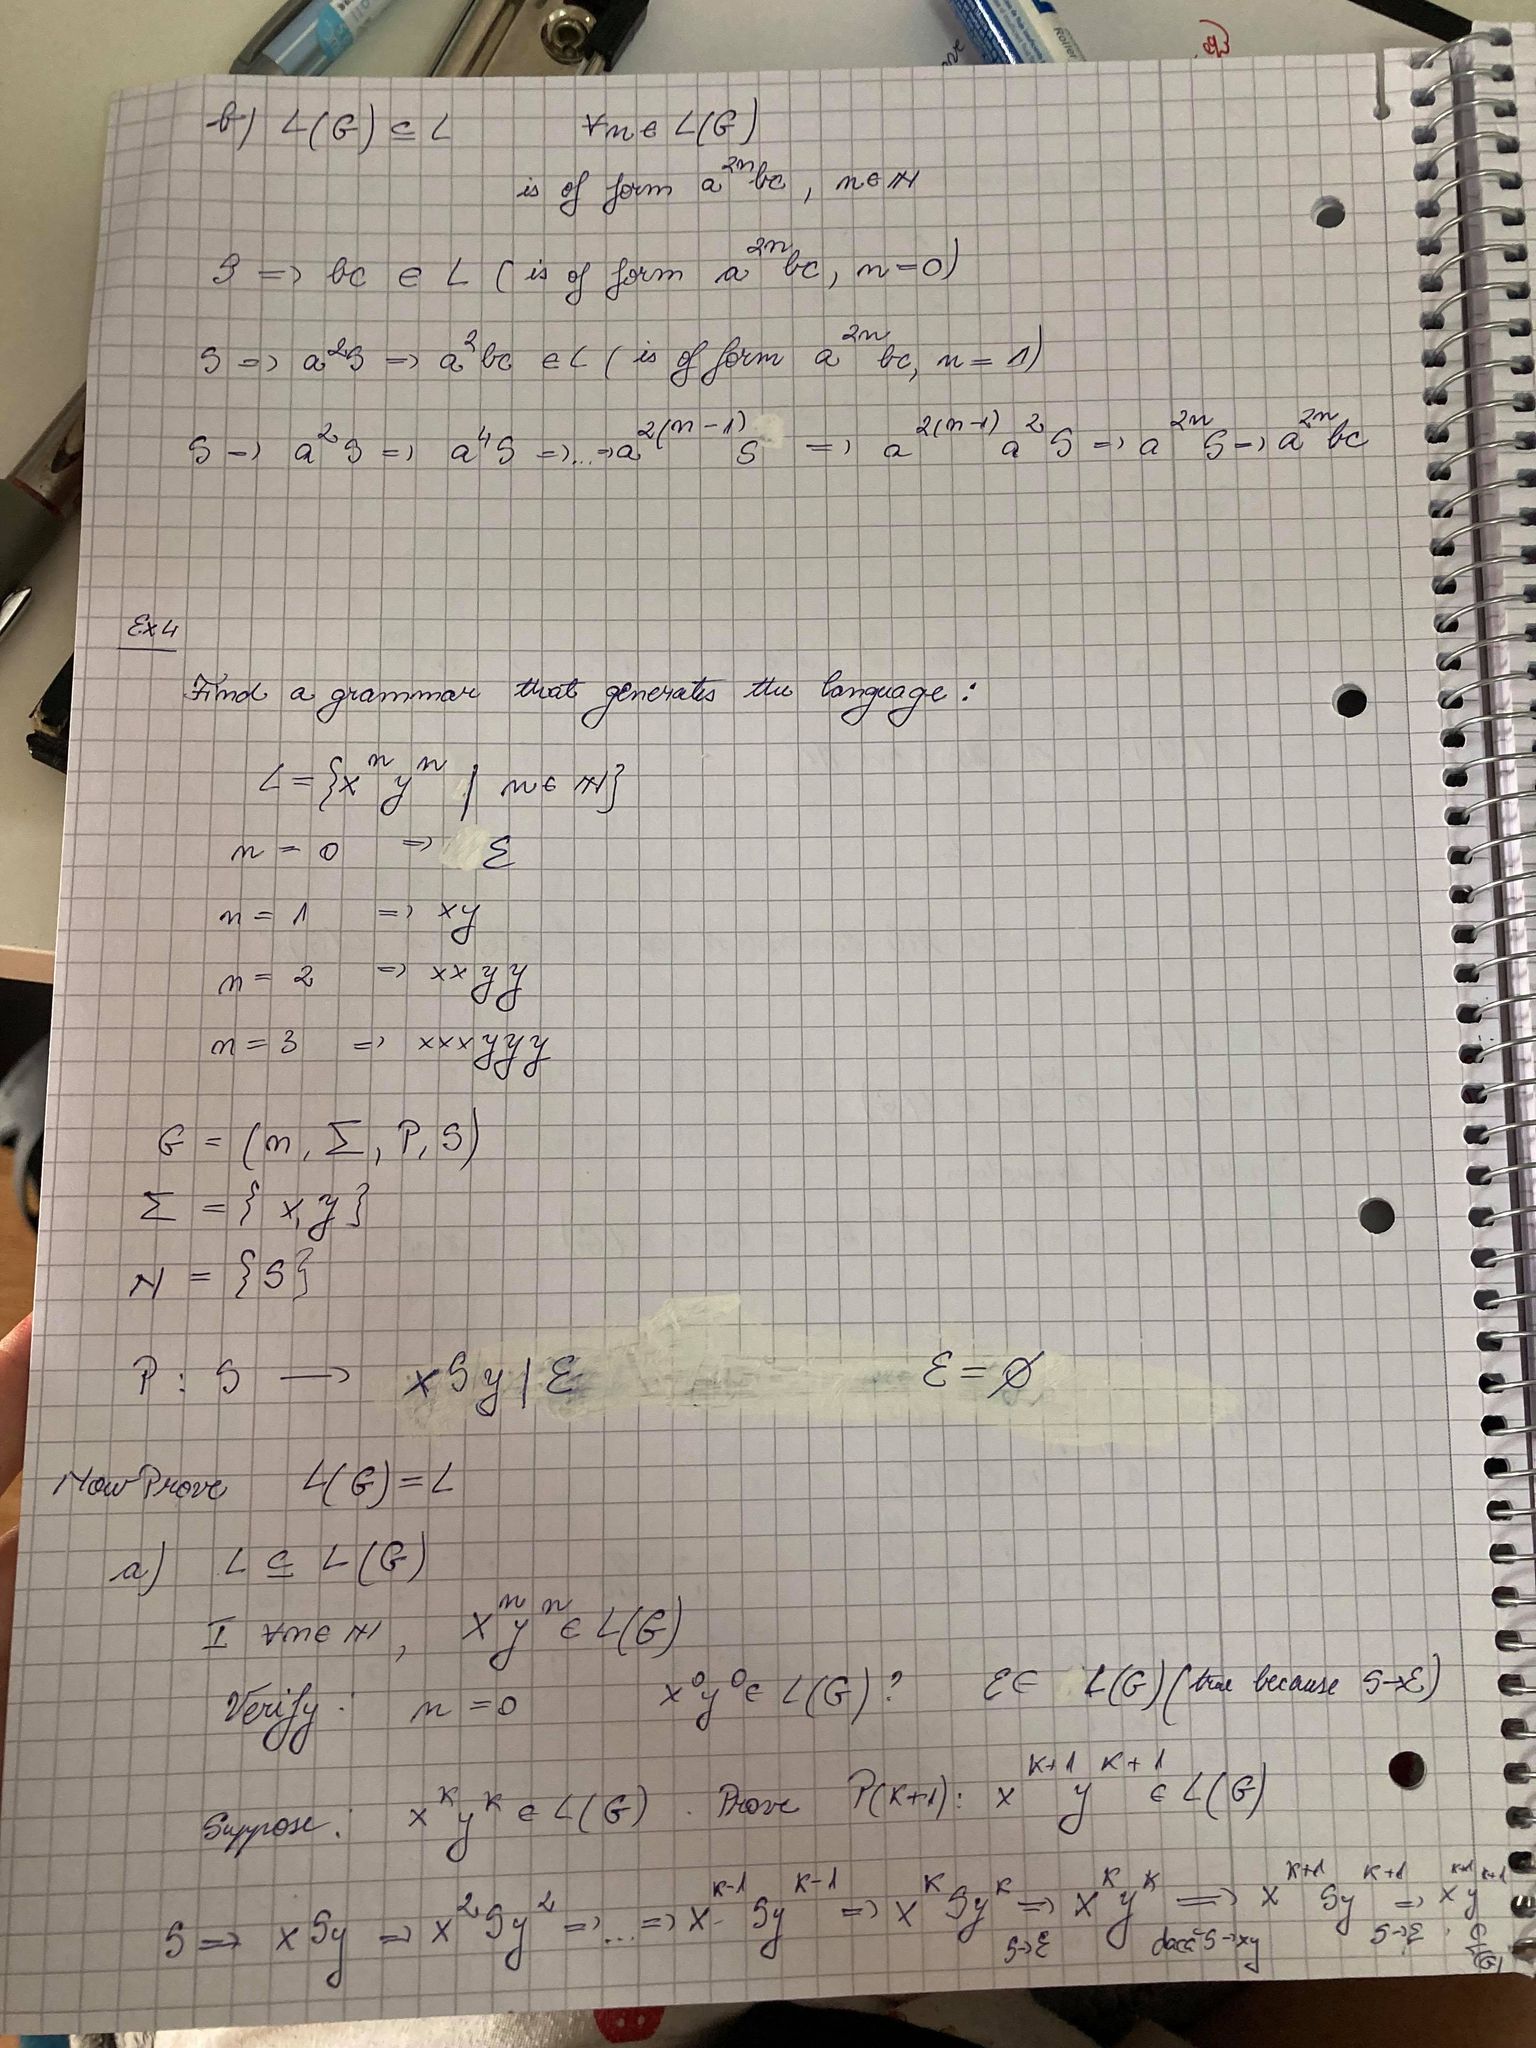 b) L(G) ⊆ L ∀n ∈ L(G)
is of form a^{2n}bc, n ∈ N
S => bc ∈ L (is of form a^{2n}bc, n=0)
S => a^2S => a^2bc ∈ L (is of form a^{2n}bc, n=1)
S => a^2S => a^4S => ... => a^{2(n-1)}S => a^{2(n-1)}a^2S => a^{2n}S => a^{2n}bc
Ex4
Find a grammar that generates the language:
L = {x^n y^n | n ∈ N}
n = 0 => ε
n = 1 => xy
n = 2 => xxyy
n = 3 => xxxyyy
G = (n, Σ, P, S)
Σ = {x,y}
N = {S}
P : S → xSy | ε ε = ∅
Now Prove L(G) = L
a) L ⊆ L(G)
I ∀n ∈ N, x^n y^n ∈ L(G)
Verify: n = 0 x^0y^0 ∈ L(G)? ε ∈ L(G) (true because S→ε)
Suppose: x^k y^k ∈ L(G). Prove P(k+1): x^{k+1} y^{k+1} ∈ L(G)
S => xSy => x^2Sy^2 => ... => x^{k-1}Sy^{k-1} => x^kSy^k => x^ky^k => x^{k+1}Sy^{k+1} => x^{k+1}y^{k+1}
S→ε dacă S→xy S→ε ∈ L(G)